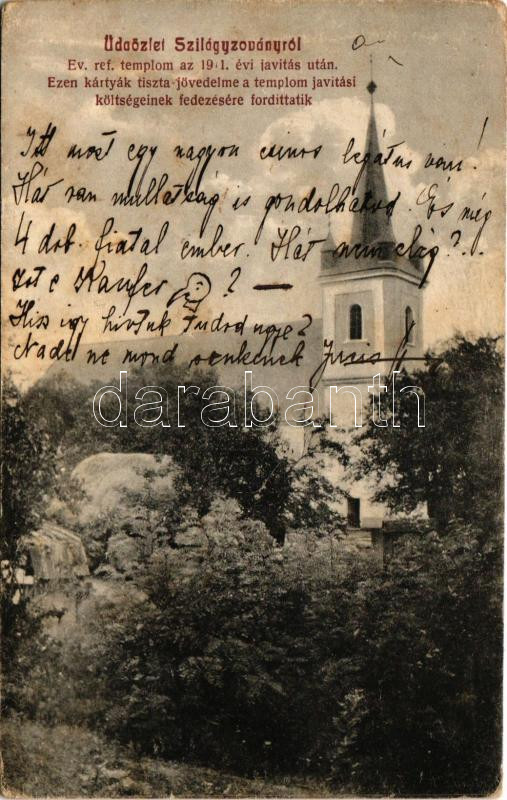 Üdvözlet Szilágyzoványról
Ev. ref. templom az 1911. évi javitás után.
Ezen kártyák tiszta jövedelme a templom javitási
költségeinek fedezésére fordittatik
Itt most egy nagyon csinos legátus van!
Hát van mullatság is gondolhatod. És még
4 drb. fiatal ember. Hát nem elég?..
? —
Hiss igy hivtuk Tudod ugye?
Nade ne mond senkinek
darabanth.com